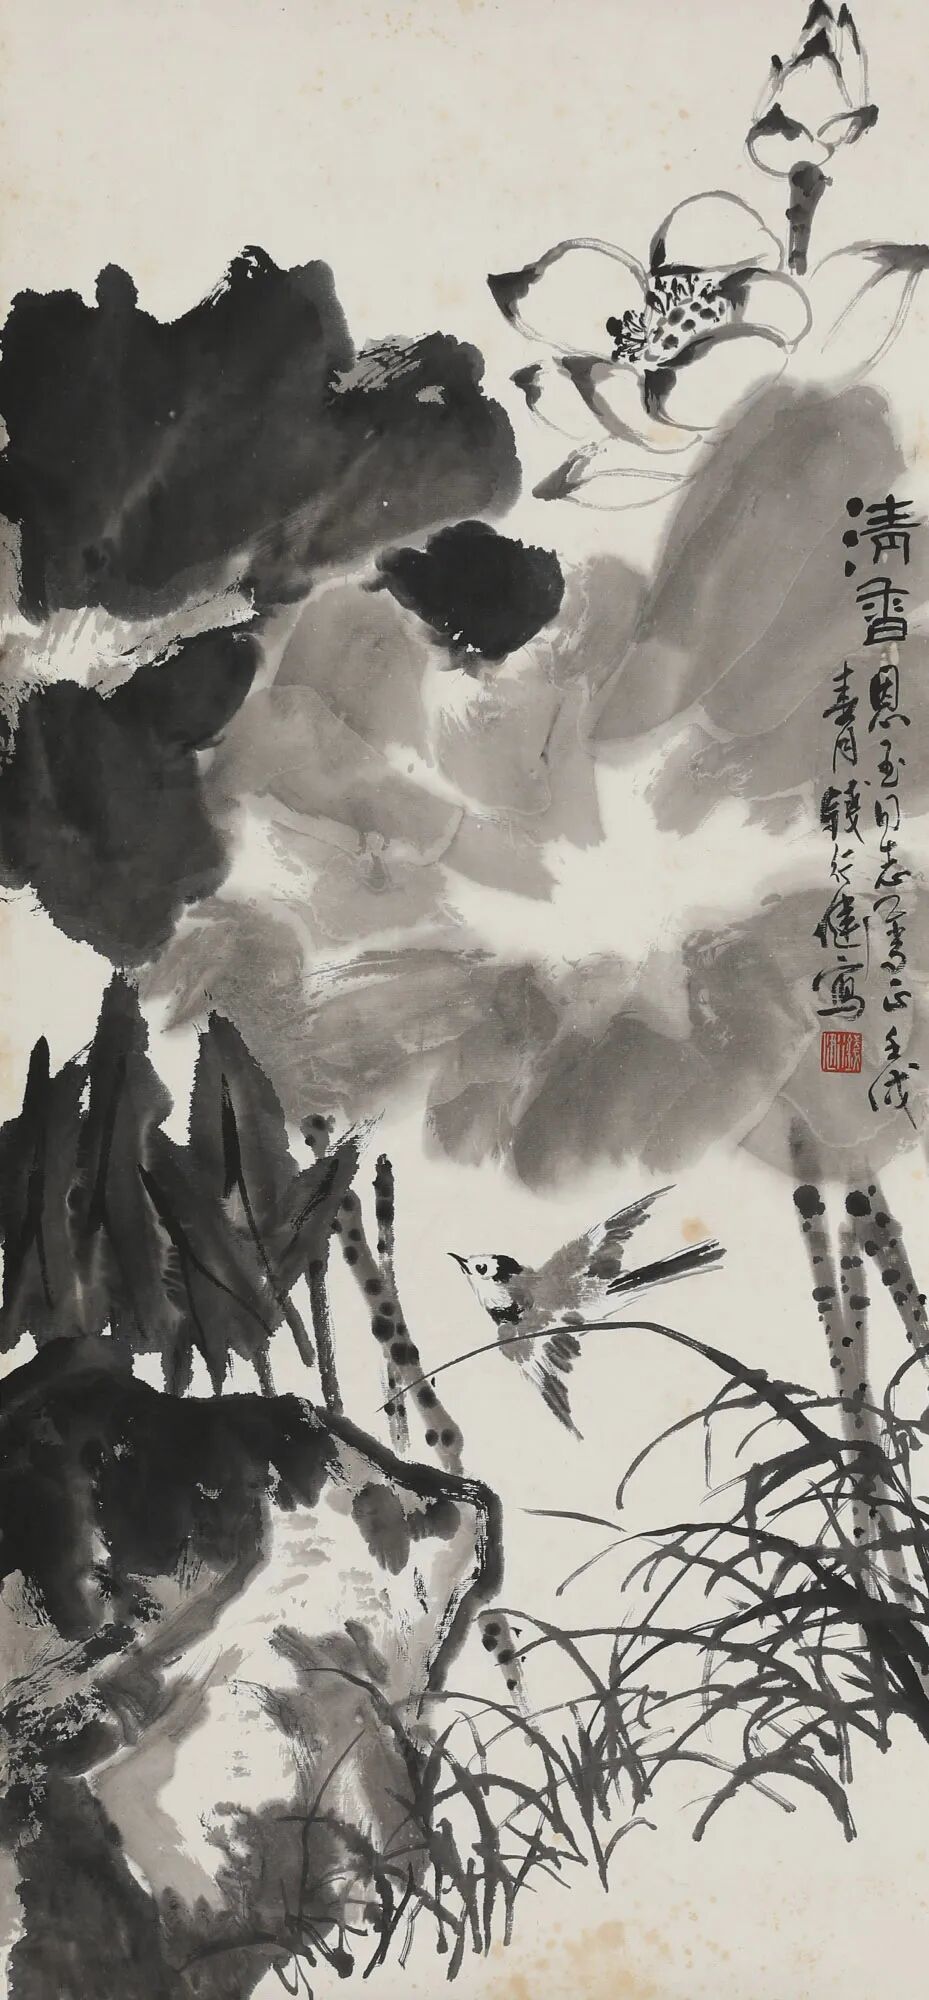 清香
恩玉同志属正壬戌
春月钱行健写